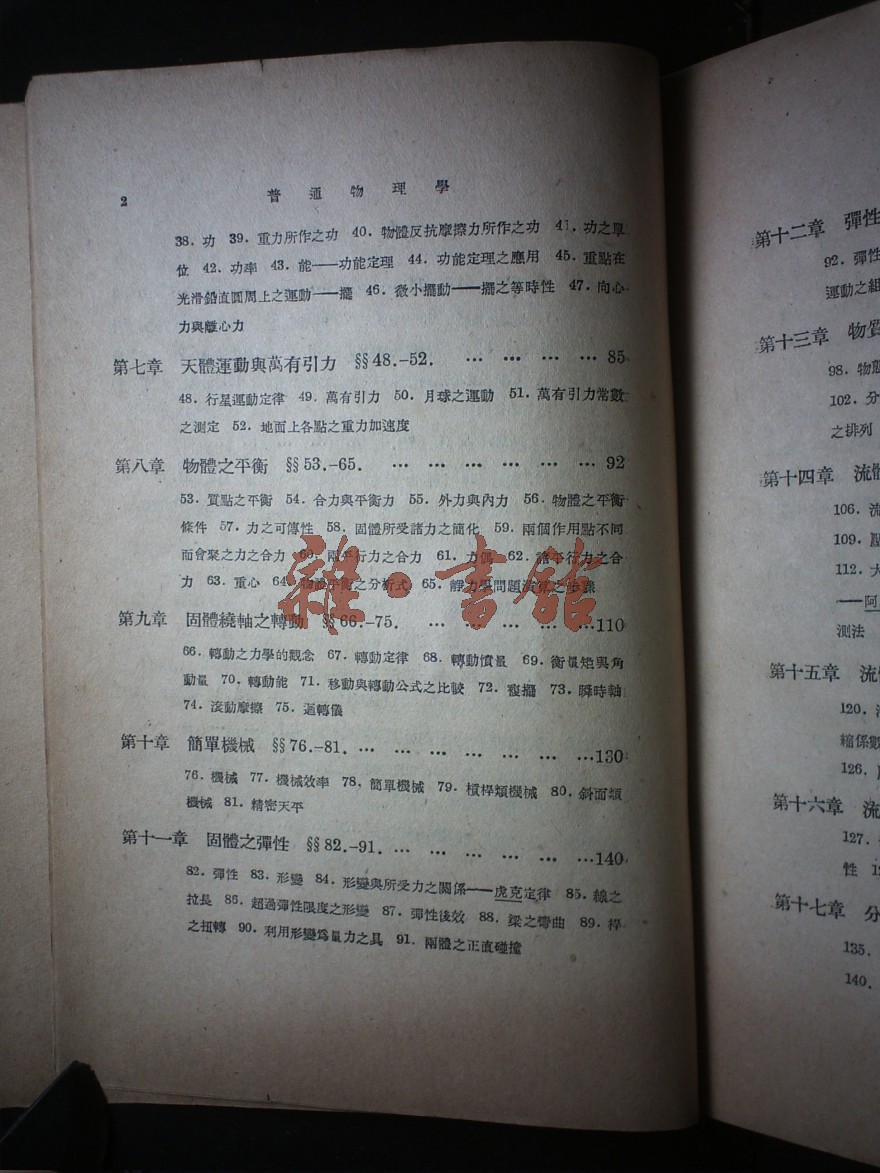 2
普通物理學
38．功 39．重力所作之功 40．物體反抗摩擦力所作之功 41．功之單
位 42．功率 43．能——功能定理 44．功能定理之應用 45．重點在
光滑鉛直圓周上之運動——擺 46．微小擺動——擺之等時性 47．向心
力與離心力
第七章 天體運動與萬有引力 §§48.-52. … … … … 85
48．行星運動定律 49．萬有引力 50．月球之運動 51．萬有引力常數
之測定 52．地面上各點之重力加速度
第八章 物體之平衡 §§53.-65. … … … … … … 92
53．質點之平衡 54．合力與平衡力 55．外力與內力 56．物體之平衡
條件 57．力之可傳性 58．固體所受諸力之簡化 59．兩個作用點不同
而會聚之力之合力 60．兩平行力之合力 61．力偶 62．諸平行力之合
力 63．重心 64．物體平衡之分析式 65．靜力學問題演算之步驟
雜·書館
第九章 固體繞軸之轉動 §§66.-75. … … … … …110
66．轉動之力學的觀念 67．轉動定律 68．轉動慣量 69．衡量矩與角
動量 70．轉動能 71．移動與轉動公式之比較 72．複擺 73．瞬時軸
74．滾動摩擦 75．迴轉儀
第十章 簡單機械 §§76.-81. … … … … … … …130
76．機械 77．機械效率 78．簡單機械 79．槓桿類機械 80．斜面類
機械 81．精密天平
第十一章 固體之彈性 §§82.-91. … … … … … …140
82．彈性 83．形變 84．形變與所受力之關係——虎克定律 85．線之
拉長 86．超過彈性限度之形變 87．彈性後效 88．梁之彎曲 89．桿
之扭轉 90．利用形變爲量力之具 91．兩體之正直碰撞
第十二章 彈性
92．彈性
運動之組
第十三章 物質
98．物態
102．分
之排列
第十四章 流體
106．流
109．壓
112．大
——阿
測法
第十五章 流
120．
縮係數
126．
第十六章 流
127．
性
第十七章 分
135．
140．